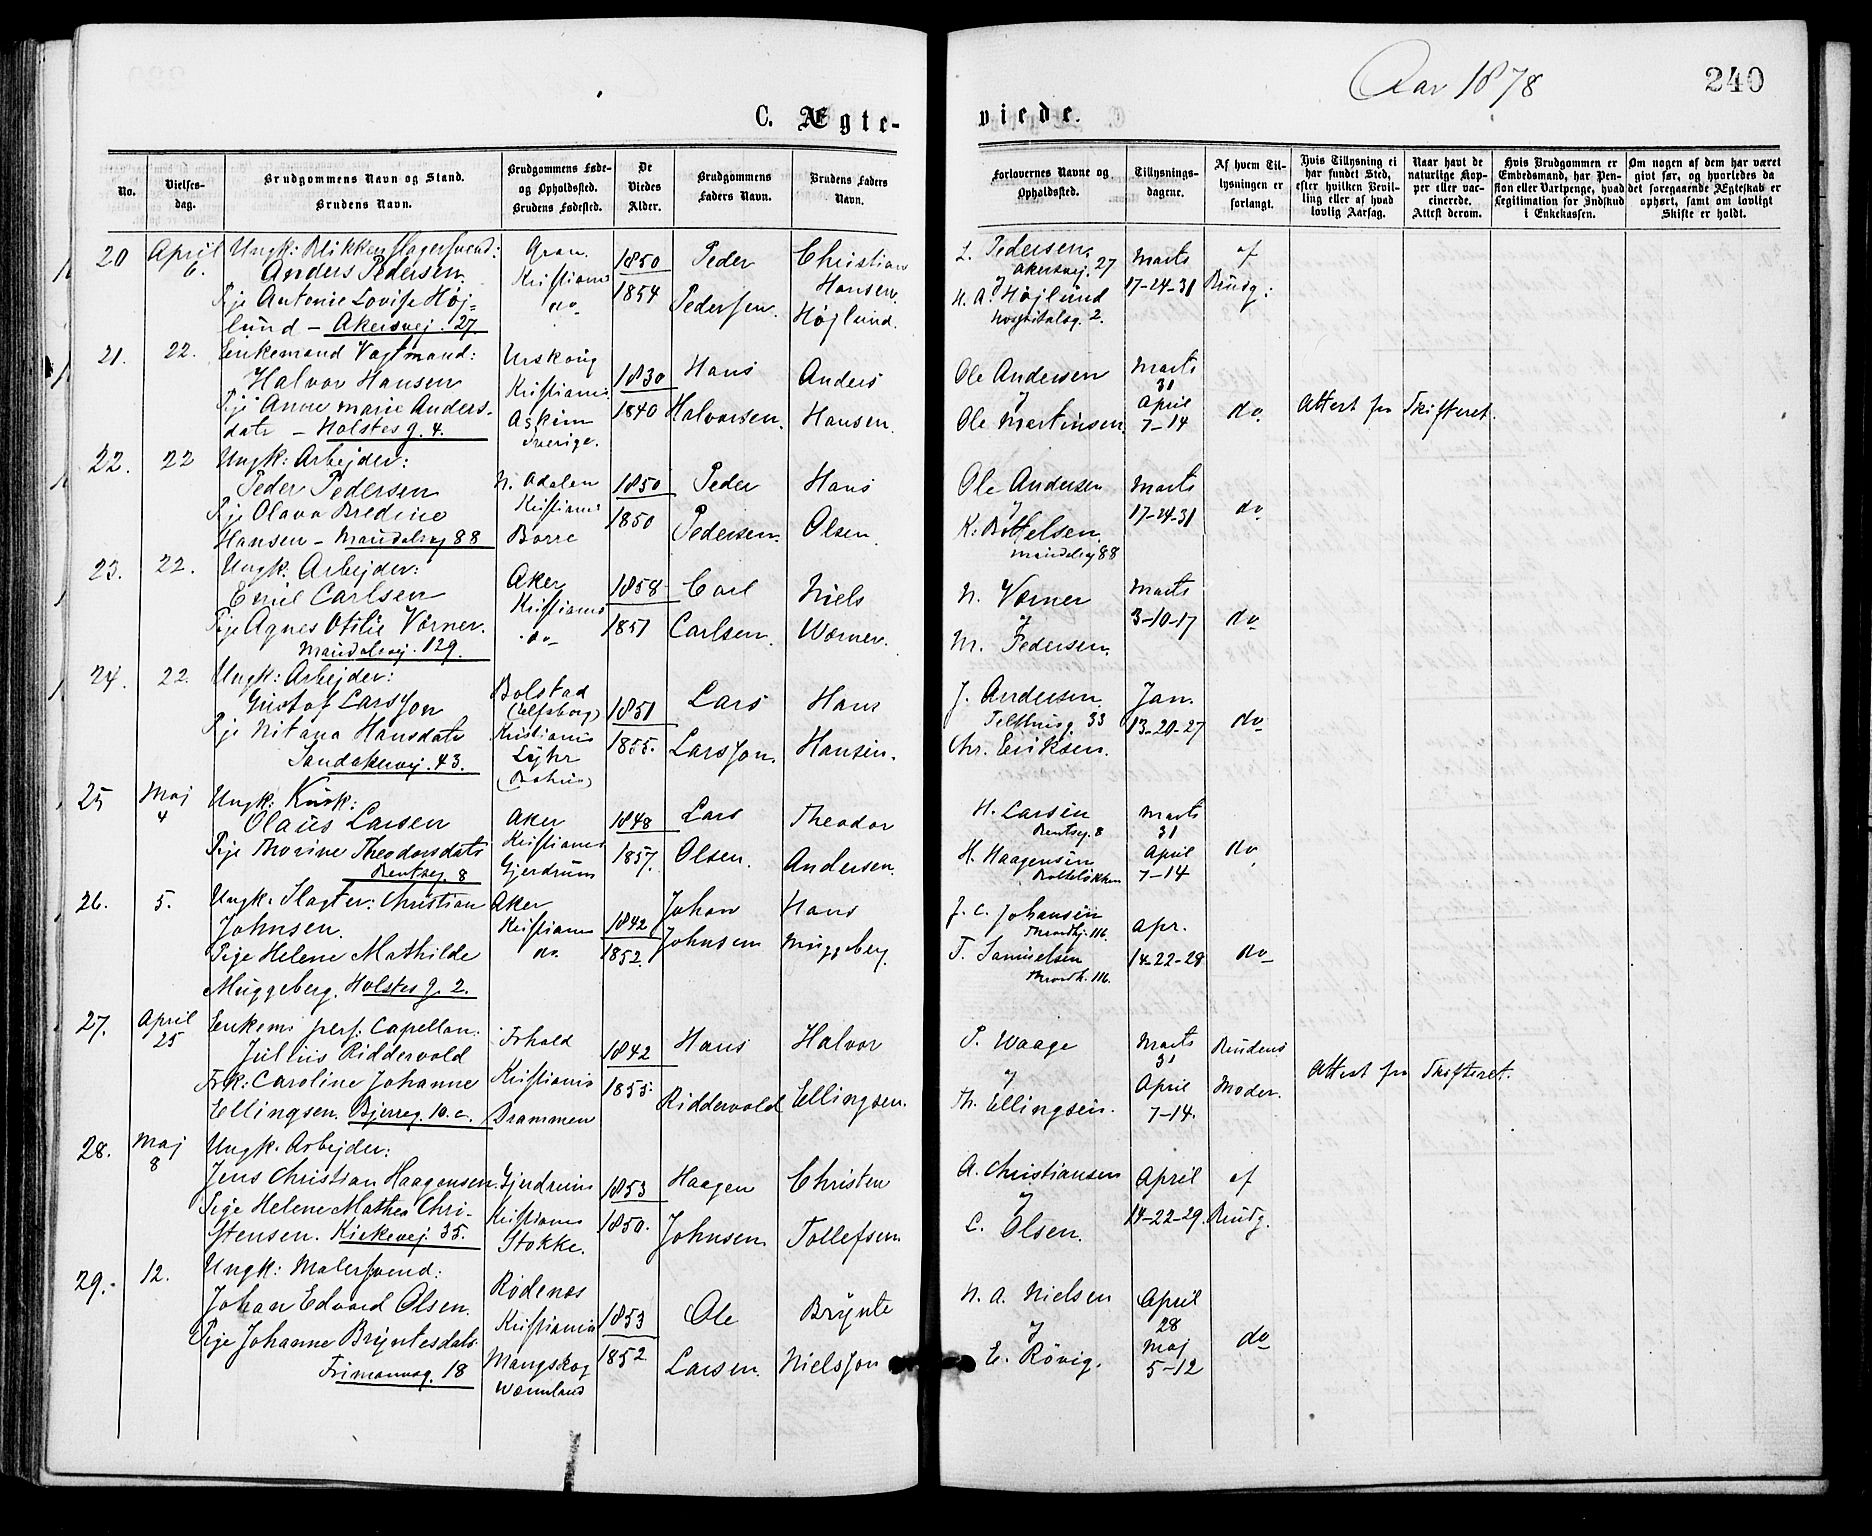 Aar 1878
240
C. Ægte-
viede.
No.
Vielses-
dag.
Brudgommens Navn og Stand.
Brudens Navn.
Brudgommens Føde-
og Opholdssted.
Brudens Fødested.
De
Viedes
Alder.
Brudgommens
Faders Navn.
Brudens Faders
Navn.
Forlovernes Navne og
Opholdssted.
Tillysnings-
dagene.
Af hvem Til-
lysningen er
forlangt.
Hvis Tillysning ei
har fundet Sted,
efter hvilken Bevil-
ling eller af hvad
lovlig Aarsag.
Naar havt de
naturlige Kop-
per eller vac-
cinerede.
Attest derom.
Hvis Brudgommen er
Embedsmand, har Pen-
sion eller Vartpenge, hvad
Legitimation for Indskud
i Enkekassen.
Om nogen af dem har været
gift før, og hvorledes da
det foregaaende Ægteskab er
ophørt, samt om lovligt
Skifte er holdt.
20 April 6.
Ungk: Blikkenslagersvend:
Anders Pedersen.
Pige Antonie Lovise Høj-
lund – Akersvej. 27.
Gran.
Kristiania
do
1850
1854
Peder
Pedersen.
Christian
Hansen
Højlund.
L. Pedersen.
Akersvej. 27
H. A. Højlund
Hospitalsg. 2.
Marts
17-24-31
af
Brudg:
21. 22.
Enkemand Vagtmand:
Halvor Hansen
Pige Anne Marie Anders-
datr – Holstes g. 4.
Urskoug
Kristiania
Askim
Sverige.
1830
1840
Hans
Halvorsen.
Anders
Hansen.
Ole Andersen
Ole Martinsen.
Marts
31
April
7-14
do
Attest fra Skifteret.
22. 22
Ungk: Arbejder:
Peder Pedersen
Pige Olava Bredine
Hansen – Maridalsvej 88
N. Adalen
Kristiania
Borre
1850
1850
Peder
Pedersen.
Hans
Olsen.
Ole Andersen
Maridalsvej 88
Marts
17-24-31
do
23. 22.
Ungk. Arbejder:
Emil Carlsen
Pige Agnes Otilie Værner.
Maridalsvej. 129.
Aker
Kristiania
do
1858
1851
Carl
Carlsen.
Niels
Wærner.
N. Værner
M. Pedersen.
Marts
3-10-17
do
24. 22.
Ungk: Arbejder:
Gustaf Larsson
Pige Nitana Hansdatr
Sandakervej. 43.
Bolstad
(Elfsborg)
Kristiania
(Bohus)
1851
1855.
Lars
Larsson.
Hans
Hansen.
J. Andersen.
33
Chr. Eriksen.
Jan.
13-20-27
do
25 Maj 4
Ungk: Kusk:
Olaus Larsen
Pige Thorine Theodorsdatr
8
Aker
Kristiania
Gjerdrum
1848
1857.
Lars
Olsen.
Theodor
Andersen.
H. Larsen
8
H. Haagensen
Marts
31
April
7-14
do
26. 5.
Ungk. Slagter: Christian
Johnsen.
Pige Helene Mathilde
Muggeberg. Holstes g. 2.
Aker
Kristiania
do.
1842
1852.
Johan
Johnsen
Hans
Muggeberg
J. C. Johansen
Throndhj. 116.
T. Samuelsen
Throndh. 116.
Apr.
14-22-28
do
27. April 25
Enkem: pers: Capellan:
Julius Riddervold
Frk: Caroline Johanne
Ellingsen. Bjerreg. 10. c.
Kristiania
Drammen
1842
1855.
Hans
Riddervold
Halvor
Ellingsen.
P. Waage
Th. Ellingsen.
Marts
31
April
7-14.
Brudens
Moder.
Attest fra Skifteret.
28. Maj 8
Ungk. Arbejder:
Jens Christian Haagensen.
Pige Helene Mathea Chri-
stensen. Kirkevej. 35.
Gjerdrum
Kristiania
Stokke.
1853
1850.
Haagen
Johnsen
Christen
Tollefsen
A. Christiansen
C. Olsen.
April
14-22-29.
af
Brudg.
29. 12.
Ungk: Malersvend:
Johan Edvard Olsen.
Pige Johanne Bryntesdatr
Frimannsg. 18
Rødenæs
Kristiania
Mangskog
Wærmland
1853
1852
Ole
Larsen.
Brynte
Nielsson
N. A. Nielsen
E. Røvig.
April
28
Maj
5-12
do